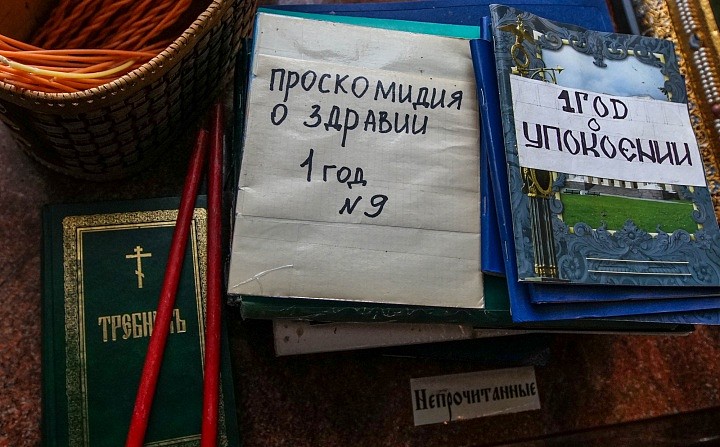 ПРОСКОМИДИЯ
О ЗДРАВИИ
1 год
N9
1 ГОD
о
УПОКОЄНИИ
ТРЕБНИКЪ
Непрочитанные